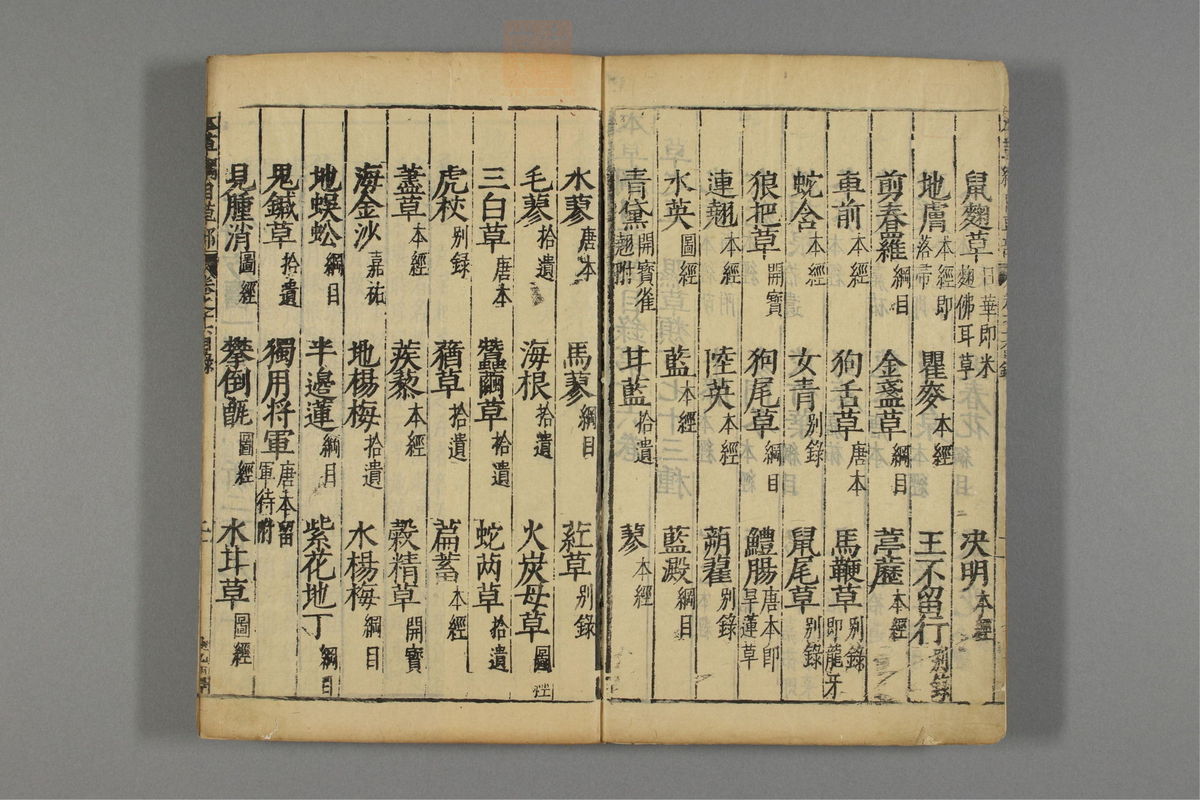 鼠麴草 日華即米麴佛耳草 決明 本經
地膚 本經即落帚 瞿麥 本經 王不留行 別錄
剪春羅 綱目 金盞草 綱目 葶藶 本經
車前 本經 狗舌草 唐本 馬鞭草 別錄即龍牙
蛇含 本經 女青 別錄 鼠尾草 別錄
狼把草 開寶 狗尾草 綱目 鱧腸 唐本即旱蓮草
連翹 本經 陸英 本經 蒴藋 別錄
水英 圖經 藍 本經 藍澱 綱目
青黛 開寶雀翹附 甘藍 拾遺 蓼 本經
水蓼 唐本 馬蓼 綱目 葒草 別錄
毛蓼 拾遺 海根 拾遺 火炭母草 圖經
三白草 唐本 蠶繭草 拾遺 蛇䒷草 拾遺
虎杖 別録 蕕草 拾遺 萹蓄 本經
藎草 本經 蒺藜 本經 穀精草 開寶
海金沙 嘉祐 地楊梅 拾遺 水楊梅 綱目
地蜈蚣 綱目 半邊蓮 綱目 紫花地丁 綱目
鬼鍼草 拾遺 獨用将軍 唐本留軍待附
見腫消 圖經 攀倒甑 圖經 水甘草 圖經